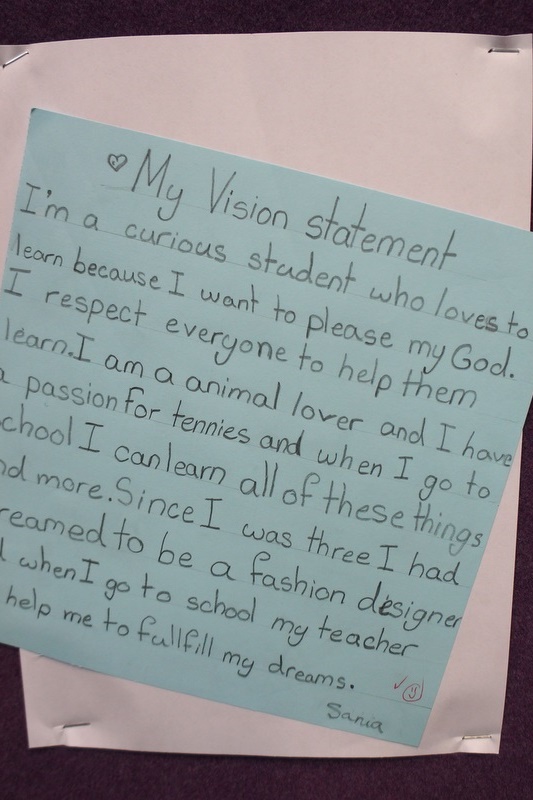 My Vision statement
I'm a curious student who loves to
learn because I want to please my God.
I respect everyone to help them
learn. I am a animal lover and I have
a passion for tennies and when I go to
chool I can learn all of these things
nd more. Since I was three I had
reamed to be a fashion designer
when I go to school my teacher
help me to fullfill my dreams.
Sania